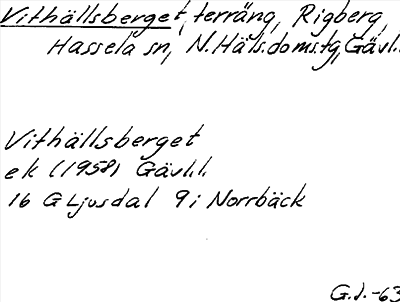 Vithällsberget, terräng, Rigberg,
Hassela sn, N. Häls. doms.tg, Gävl.
Vithällsberget
ek (1958) Gävl.l.
16 G Ljusdal 9 i Norrbäck
G.J. -63